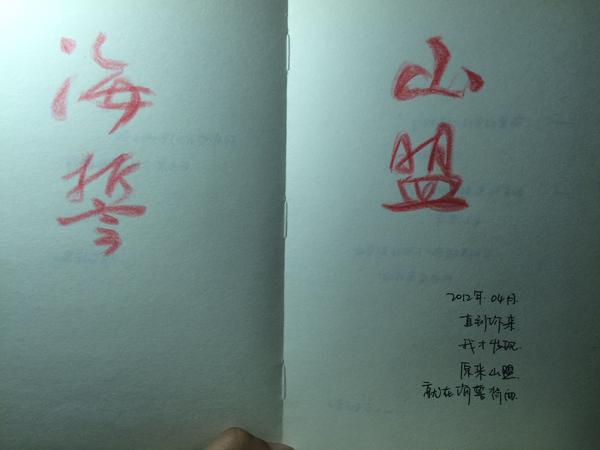 海誓
山盟
2012年.04月.
直到你来
我才发现.
原来山盟
就在海誓对面